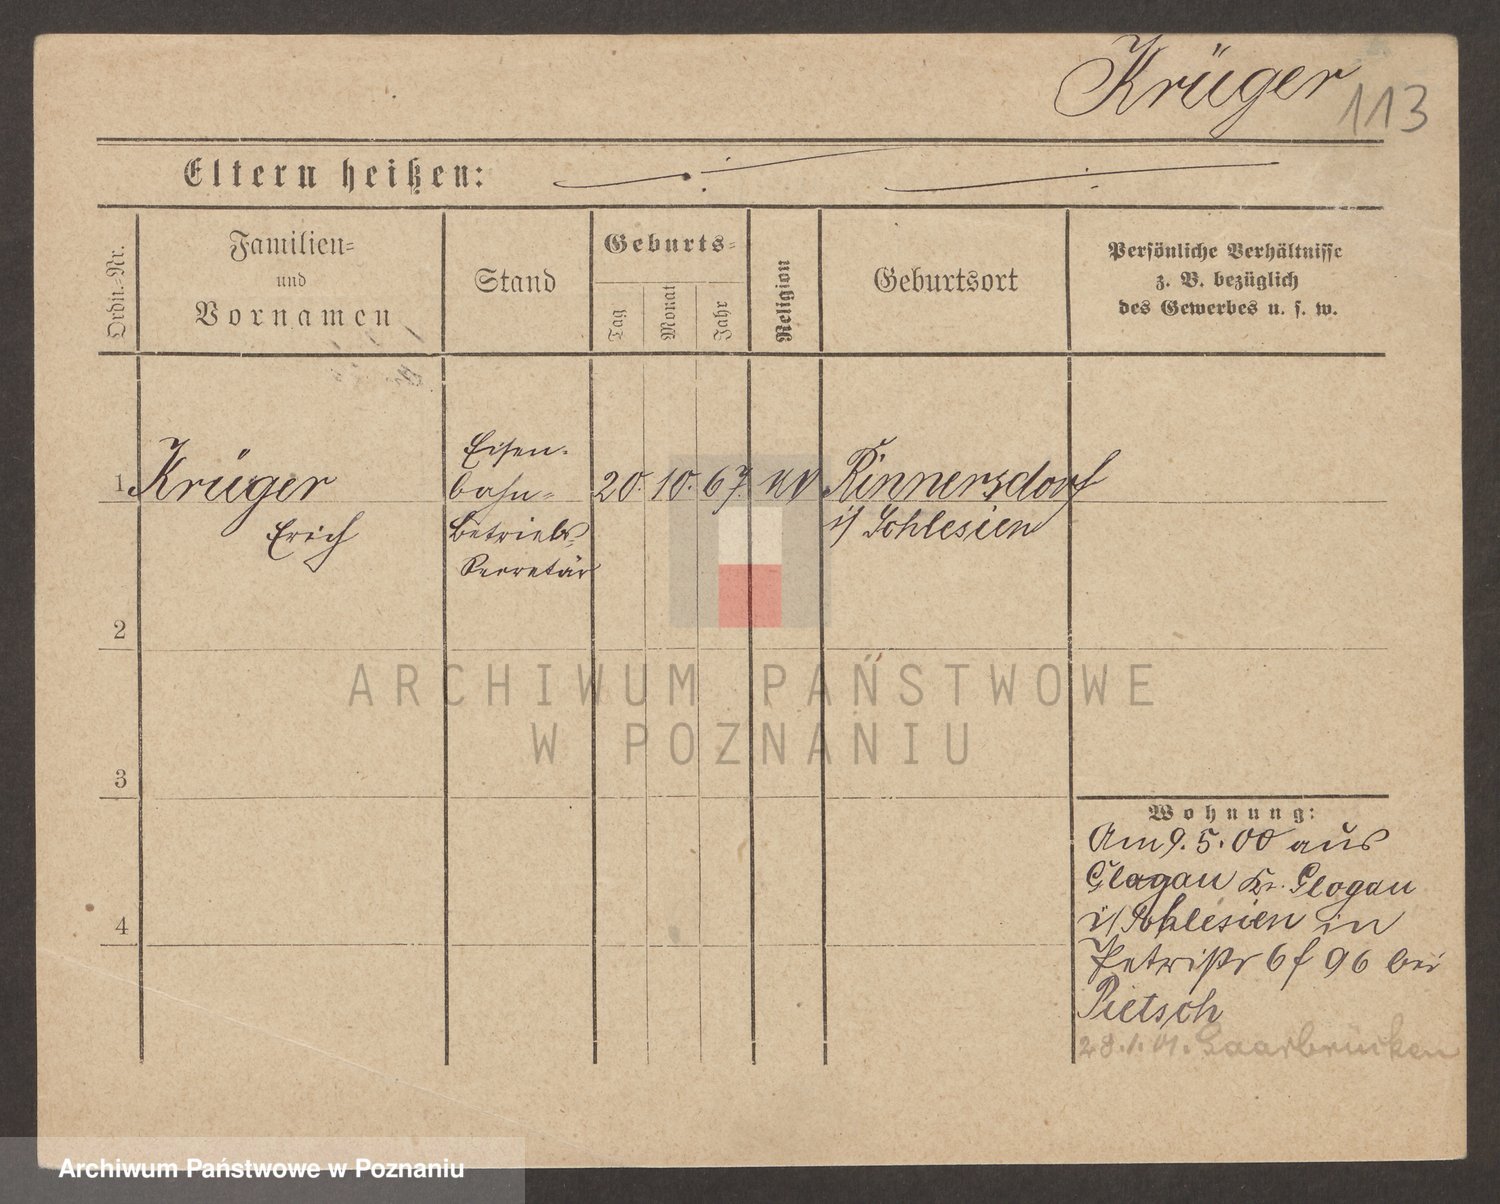 Krüger
113
Eltern heißen:
Ordn.-Nr.
Familien-
und
Vornamen
Stand
Geburts-
Tag
Monat
Jahr
Religion
Geburtsort
Persönliche Verhältnisse
z. B. bezüglich
des Gewerbes u. s. w.
1 Krüger
Erich
Eisen-
bahn-
Betriebs-
Secretär
20. 10. 67.
Rinnersdorf
i/ Schlesien
2
3
4
Wohnung:
Am 9.5.00 aus
Glogau Kr. Glogau
i/ Schlesien in
Petristr 6 f 96 bei
Pietsch
28.1.01. Saarbrücken
ARCHIWUM PAŃSTWOWE
W POZNANIU
Archiwum Państwowe w Poznaniu